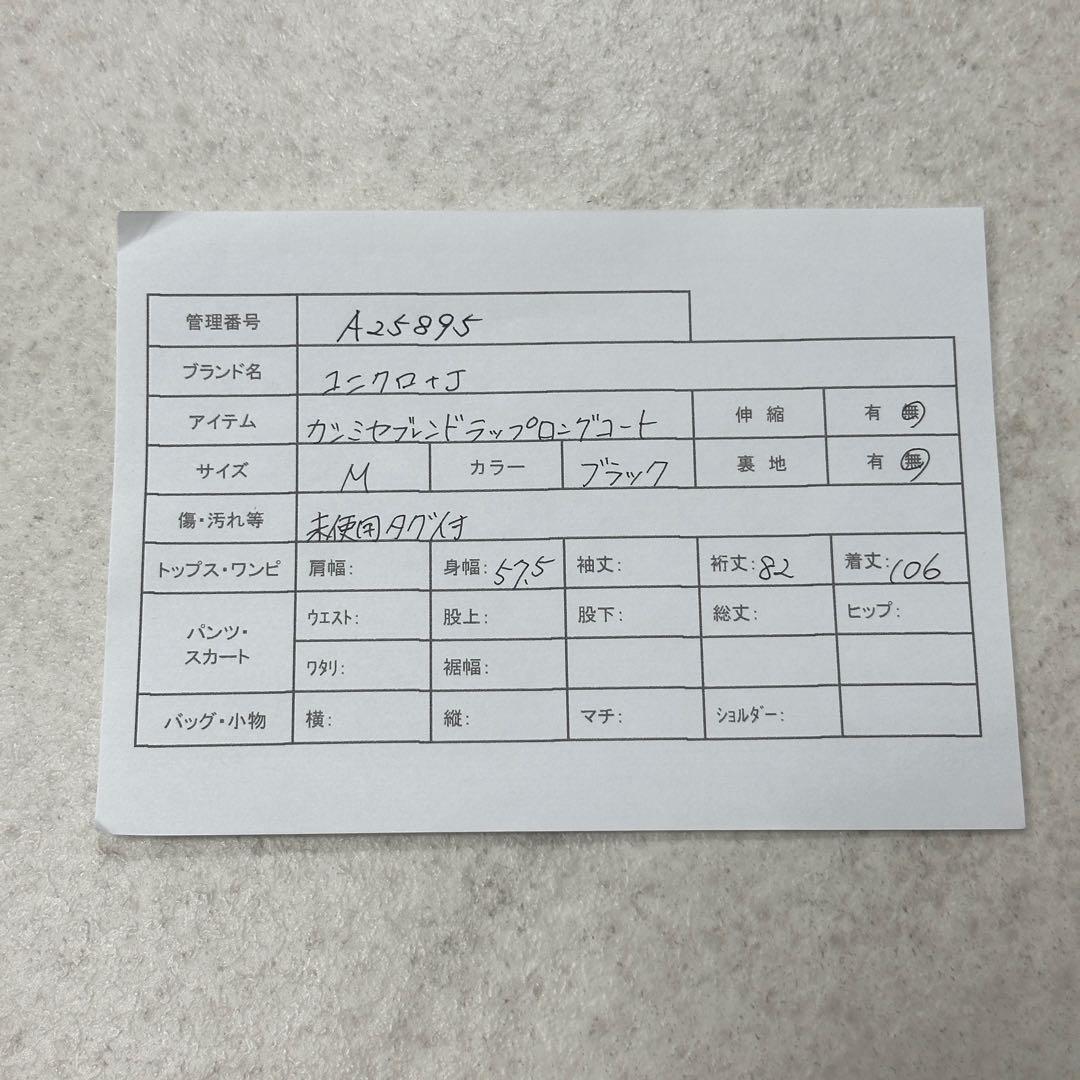 管理番号 A25895
ブランド名 ユニクロ+J
アイテム カシミヤブレンドラップロングコート 伸縮 有 無
サイズ M カラー ブラック 裏地 有 無
傷・汚れ等 未使用タグ付
トップス・ワンピ 肩幅: 身幅:57.5 袖丈: 裄丈:82 着丈:106
パンツ・スカート ウエスト: 股上: 股下: 総丈: ヒップ:
ワタリ: 裾幅:
バッグ・小物 横: 縦: マチ: ショルダー: